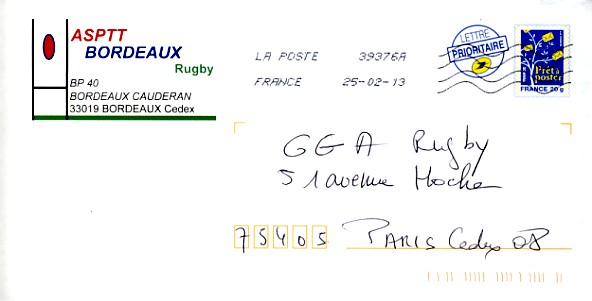 ASPTT
BORDEAUX
Rugby
BP 40
BORDEAUX CAUDERAN
33019 BORDEAUX Cedex
LA POSTE 39376A
FRANCE 25-02-13
LETTRE
PRIORITAIRE
Prêt à
poster
FRANCE 20 g
GGA Rugby
51 avenue Hoche
75405 PARIS Cedex 08